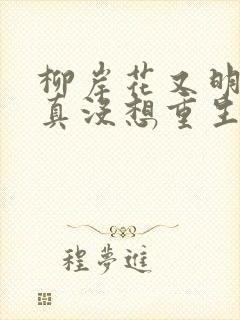 柳岸花又明
真没想重生
程夢進